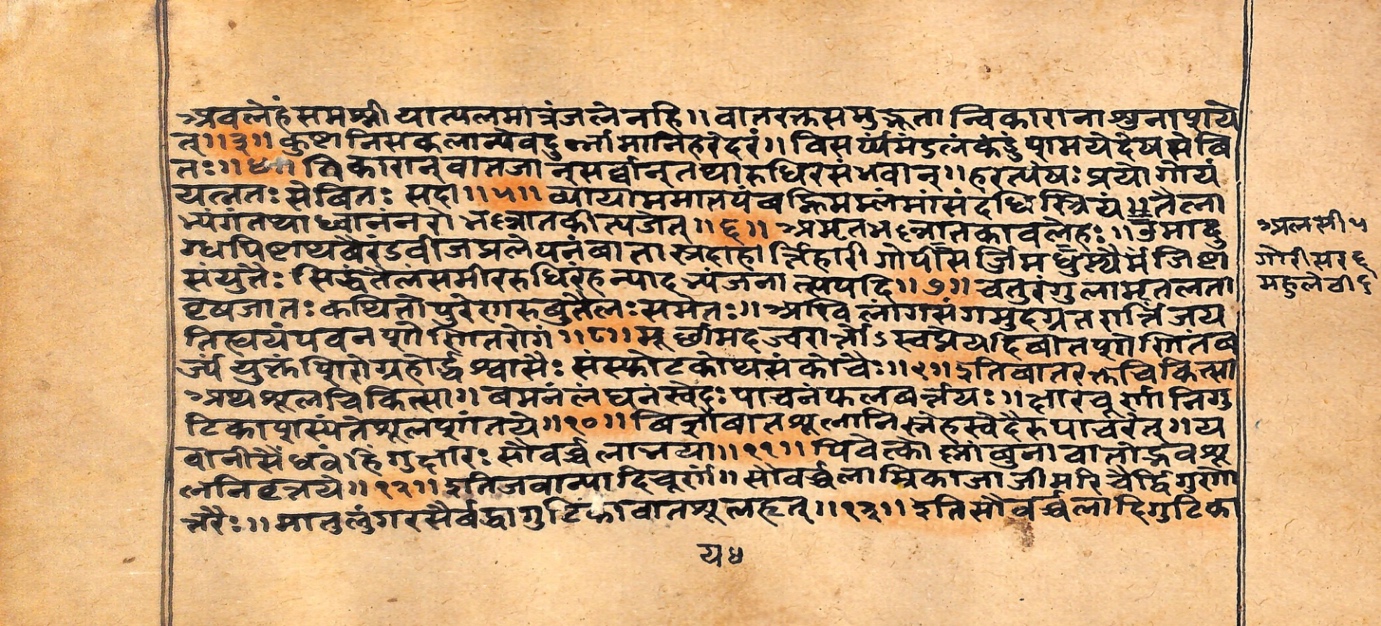 अवलेहं समश्नीयात्पलमात्रंजलेनहि॥ वातरक्तसमुद्भूतान्विकारानाशुनाशये
त्॥३॥ कुष्टानिसकलान्येवदुर्नामानिहरेदरं॥ विसर्प्पमंडलंकंडुंपामयेदेयसेवि
तः॥४॥ विकारान् वातजान्सर्व्वान् तथारुधिरसंभवान्॥ हरत्येषः प्रयोगोयं
यत्नतः सेवितः सदा॥५॥ व्यायाममातपंवह्निमम्लंमांसंदधिस्त्रियं॥ तैला
भ्यंगंतथाध्वानंनरोभल्लातकीत्यजेत्॥६॥ अमृतभल्लातकावलेहः॥ उमादु
ग्धपिष्टाथवैरंडवीजप्रलेपनंवातास्रदाहार्त्तिहारी गोपीसर्ज्जिमधुस्थैर्मंजिष्टा
संयुतैः सिद्धंतैलंसमीररुधिरंहन्यादभ्यंजनात्सपदि॥७॥ चतुरंगुलामृतलता
वृषजातः कथितोपुरेणरुवुतैलःसमेतः॥ अखिलांगसंगमुदग्रतरार्त्तिंजय
तिस्वयंपवनशोणितरोगं॥८॥ मूर्छामदज्वरार्त्तोऽस्वप्नेत्यादिवातशोणितंव
र्ज्यं युक्तंशिरोग्रहोर्द्धश्वासैः संस्फोटकोथसंकोचैः॥९॥ इतिवातरक्तचिकित्सा
अथशूलचिकित्सा॥ वमनंलंघनंस्वेदः पाचनंफलवर्त्तयः॥ क्षारचूर्णानिगु
टिकाशस्यंतेशूलशांतये॥१०॥ विज्ञोवातशूलानिस्नेहस्वेदैरुपाचरेत्॥ य
वानीसैंधवंहिंगुक्षारः सौवर्च्चलाभया॥११॥ पिवेत्कोष्णांवुनावातोद्भवशू
लनिवृत्तये॥१२॥ इतिजवान्यादिचूर्णं॥ सौवर्च्चलाम्लिकाजाजीमरिचैर्द्विगुणो
त्तरैः॥ मातुलुंगरसैर्वद्धागुटिकावातशूलहृत्॥१३॥ इतिसौवर्च्चलादिगुटिका
अलसी५
गोरीसर६